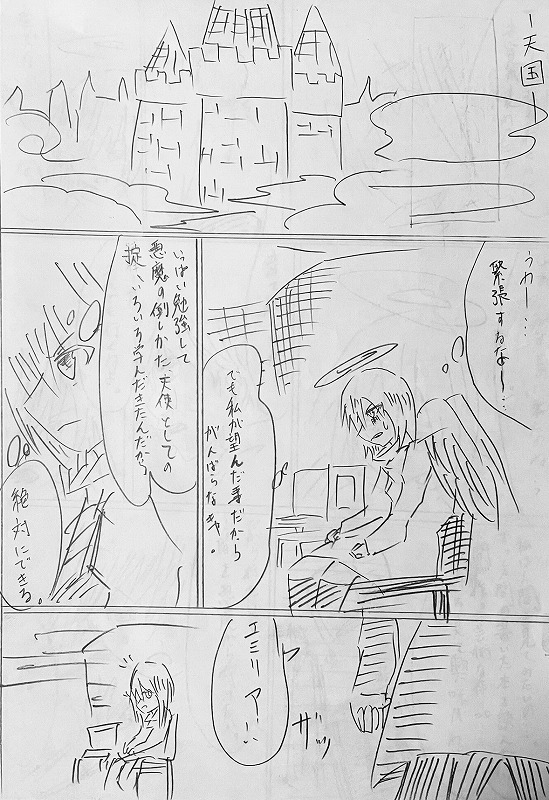 －天国－
うわー…
緊張するなー…
でも私が望んだ事だから
がんばらなきゃ。
いっぱい勉強して
悪魔の倒しかた、天使としての
掟、いろいろ学んできたんだから
絶対にできる。
エミリアーい
ザッ